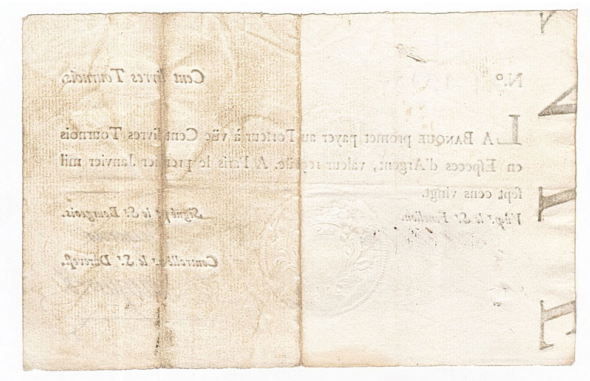 N.º Cent livres Tournois.
LA BANQUE promet payer au Porteur à vûë Cent livres Tournois
en Especes d'Argent, valeur reçûë. A Paris le premier Janvier mil
sept cens vingt.
Vû p.r le S.r Fenellon. Signé p.r le S.r Bourgeois.
Controllé p.r le S.r Durevest.